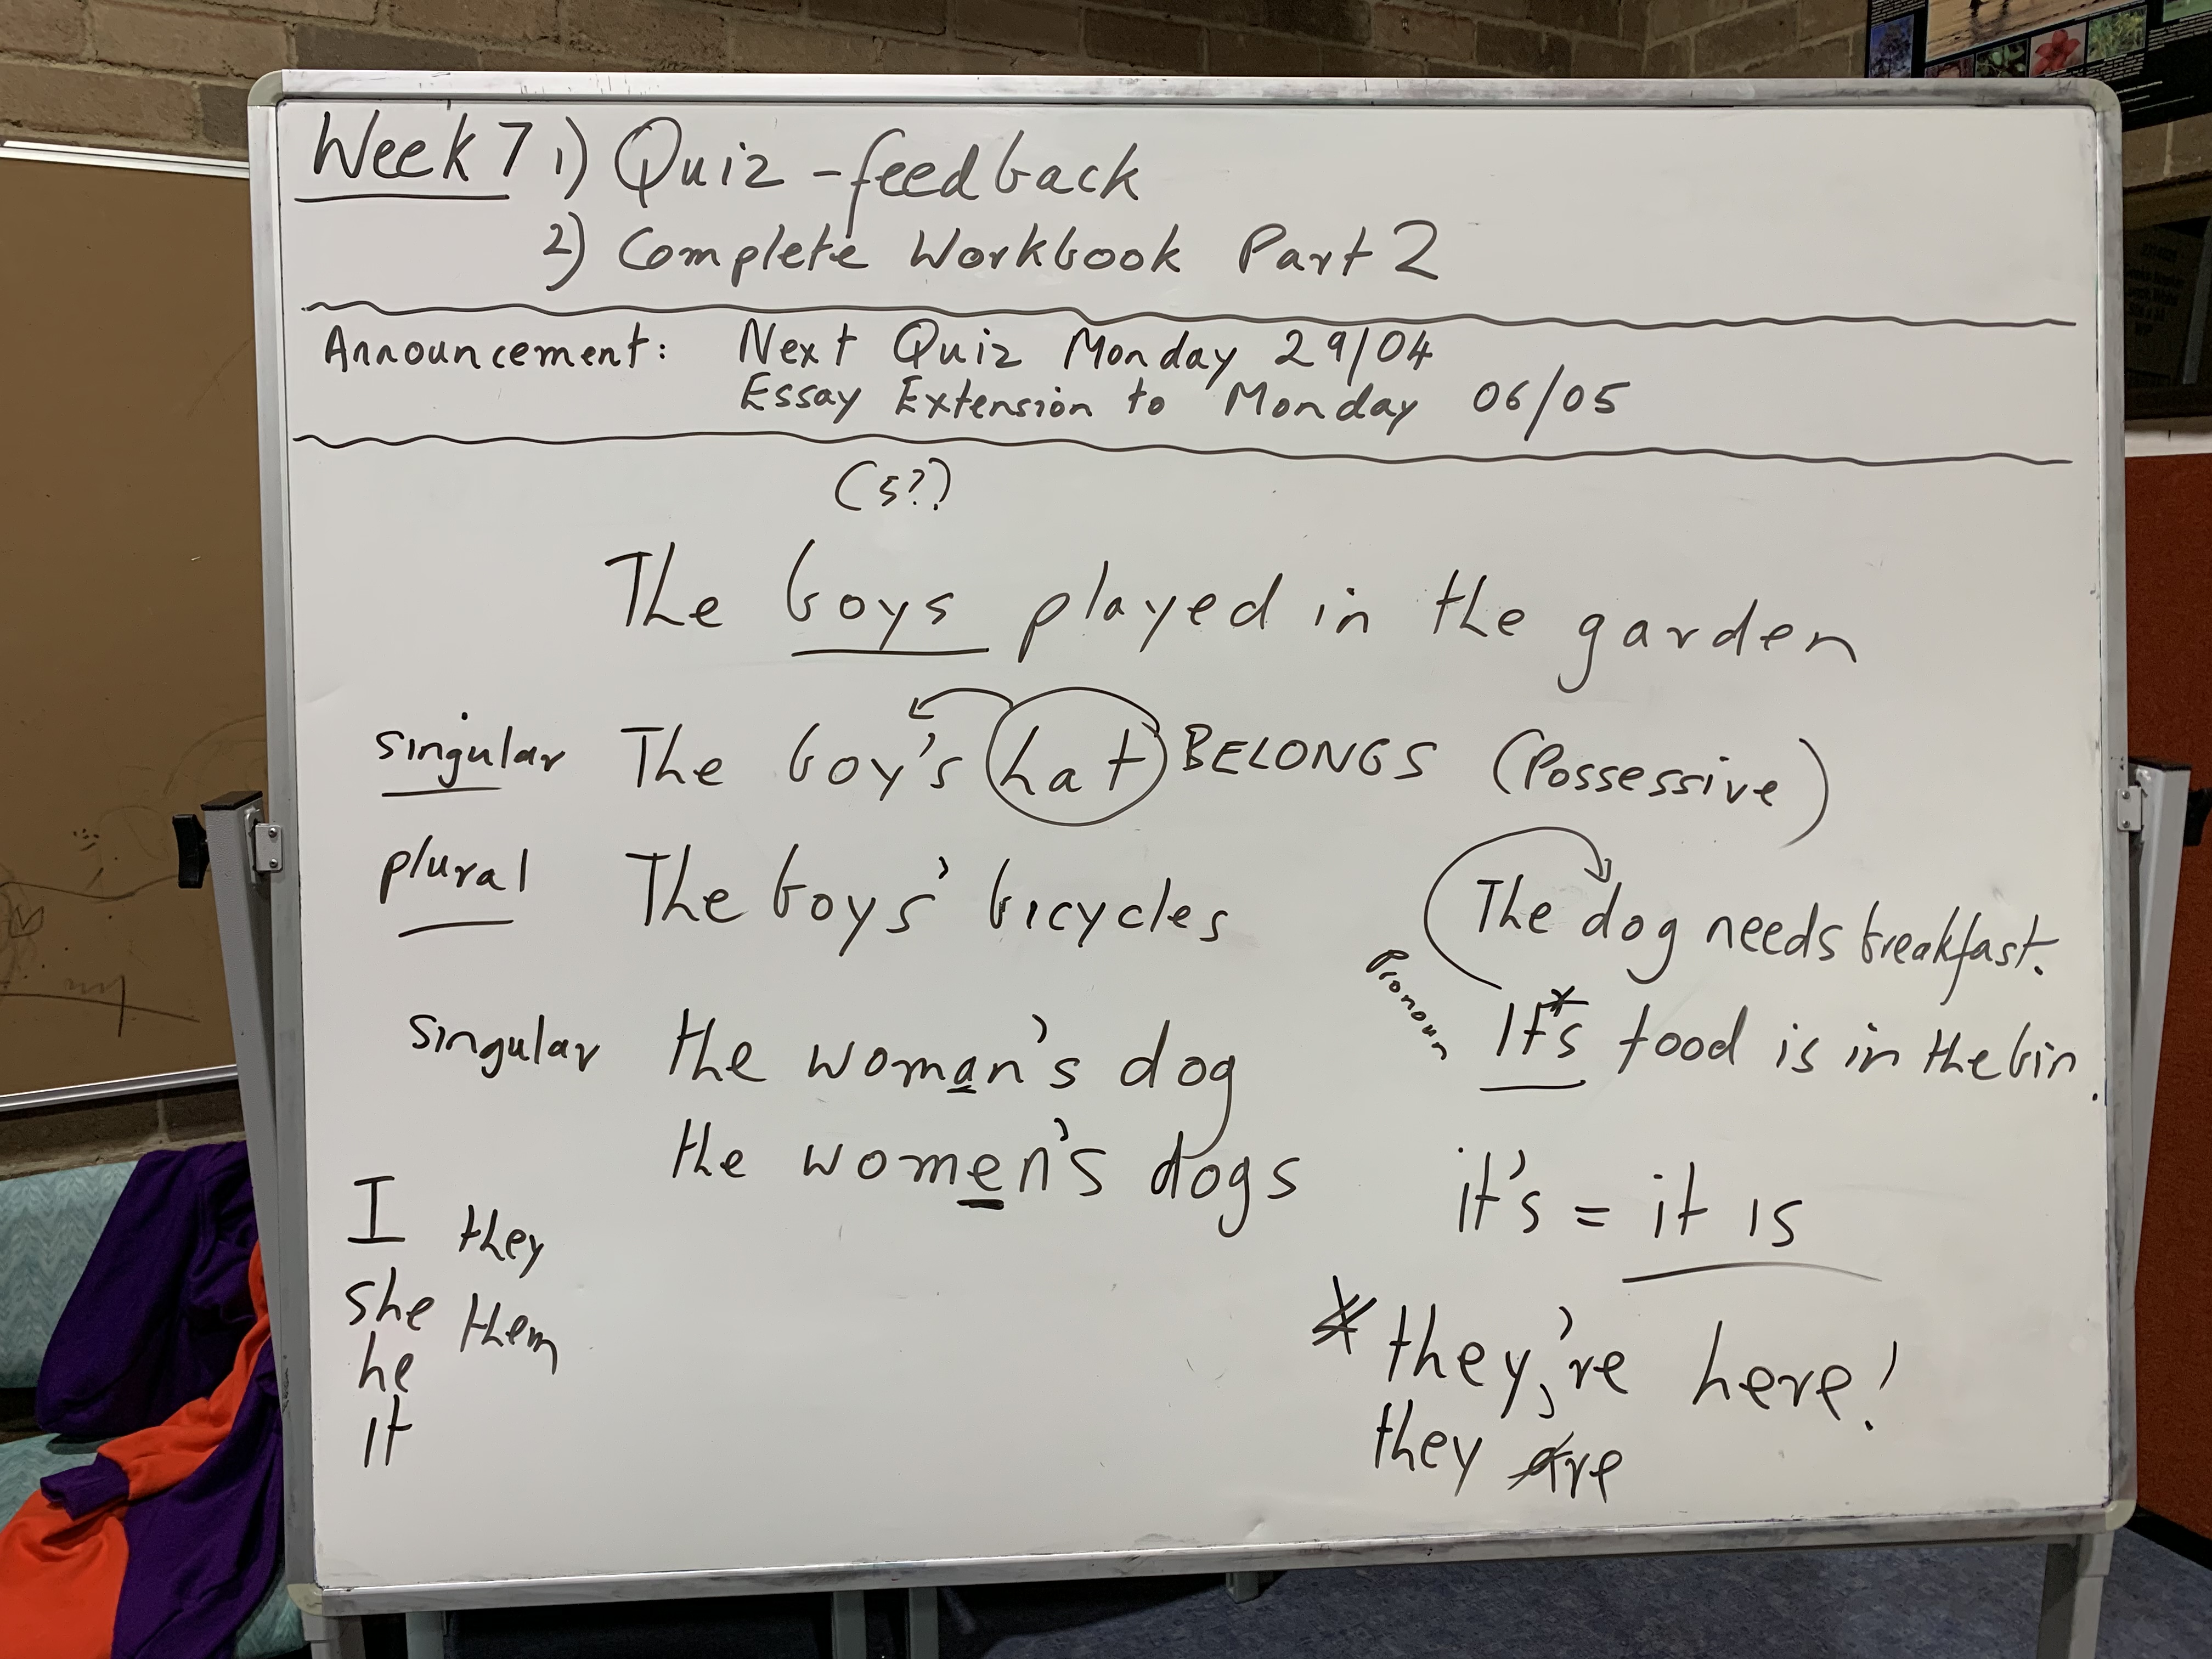 Week 7 1) Quiz - feedback
2) Complete Workbook Part 2
Announcement: Next Quiz Monday 29/04
Essay Extension to Monday 06/05
(s??)
The boys played in the garden
singular The boy's hat BELONGS (Possessive)
plural The boys' bicycles
The dog needs breakfast.
Pronoun
It*s food is in the bin.
singular the woman's dog
the women's dogs
it's = it is
I they
she them
he
it
* they're here!
they are